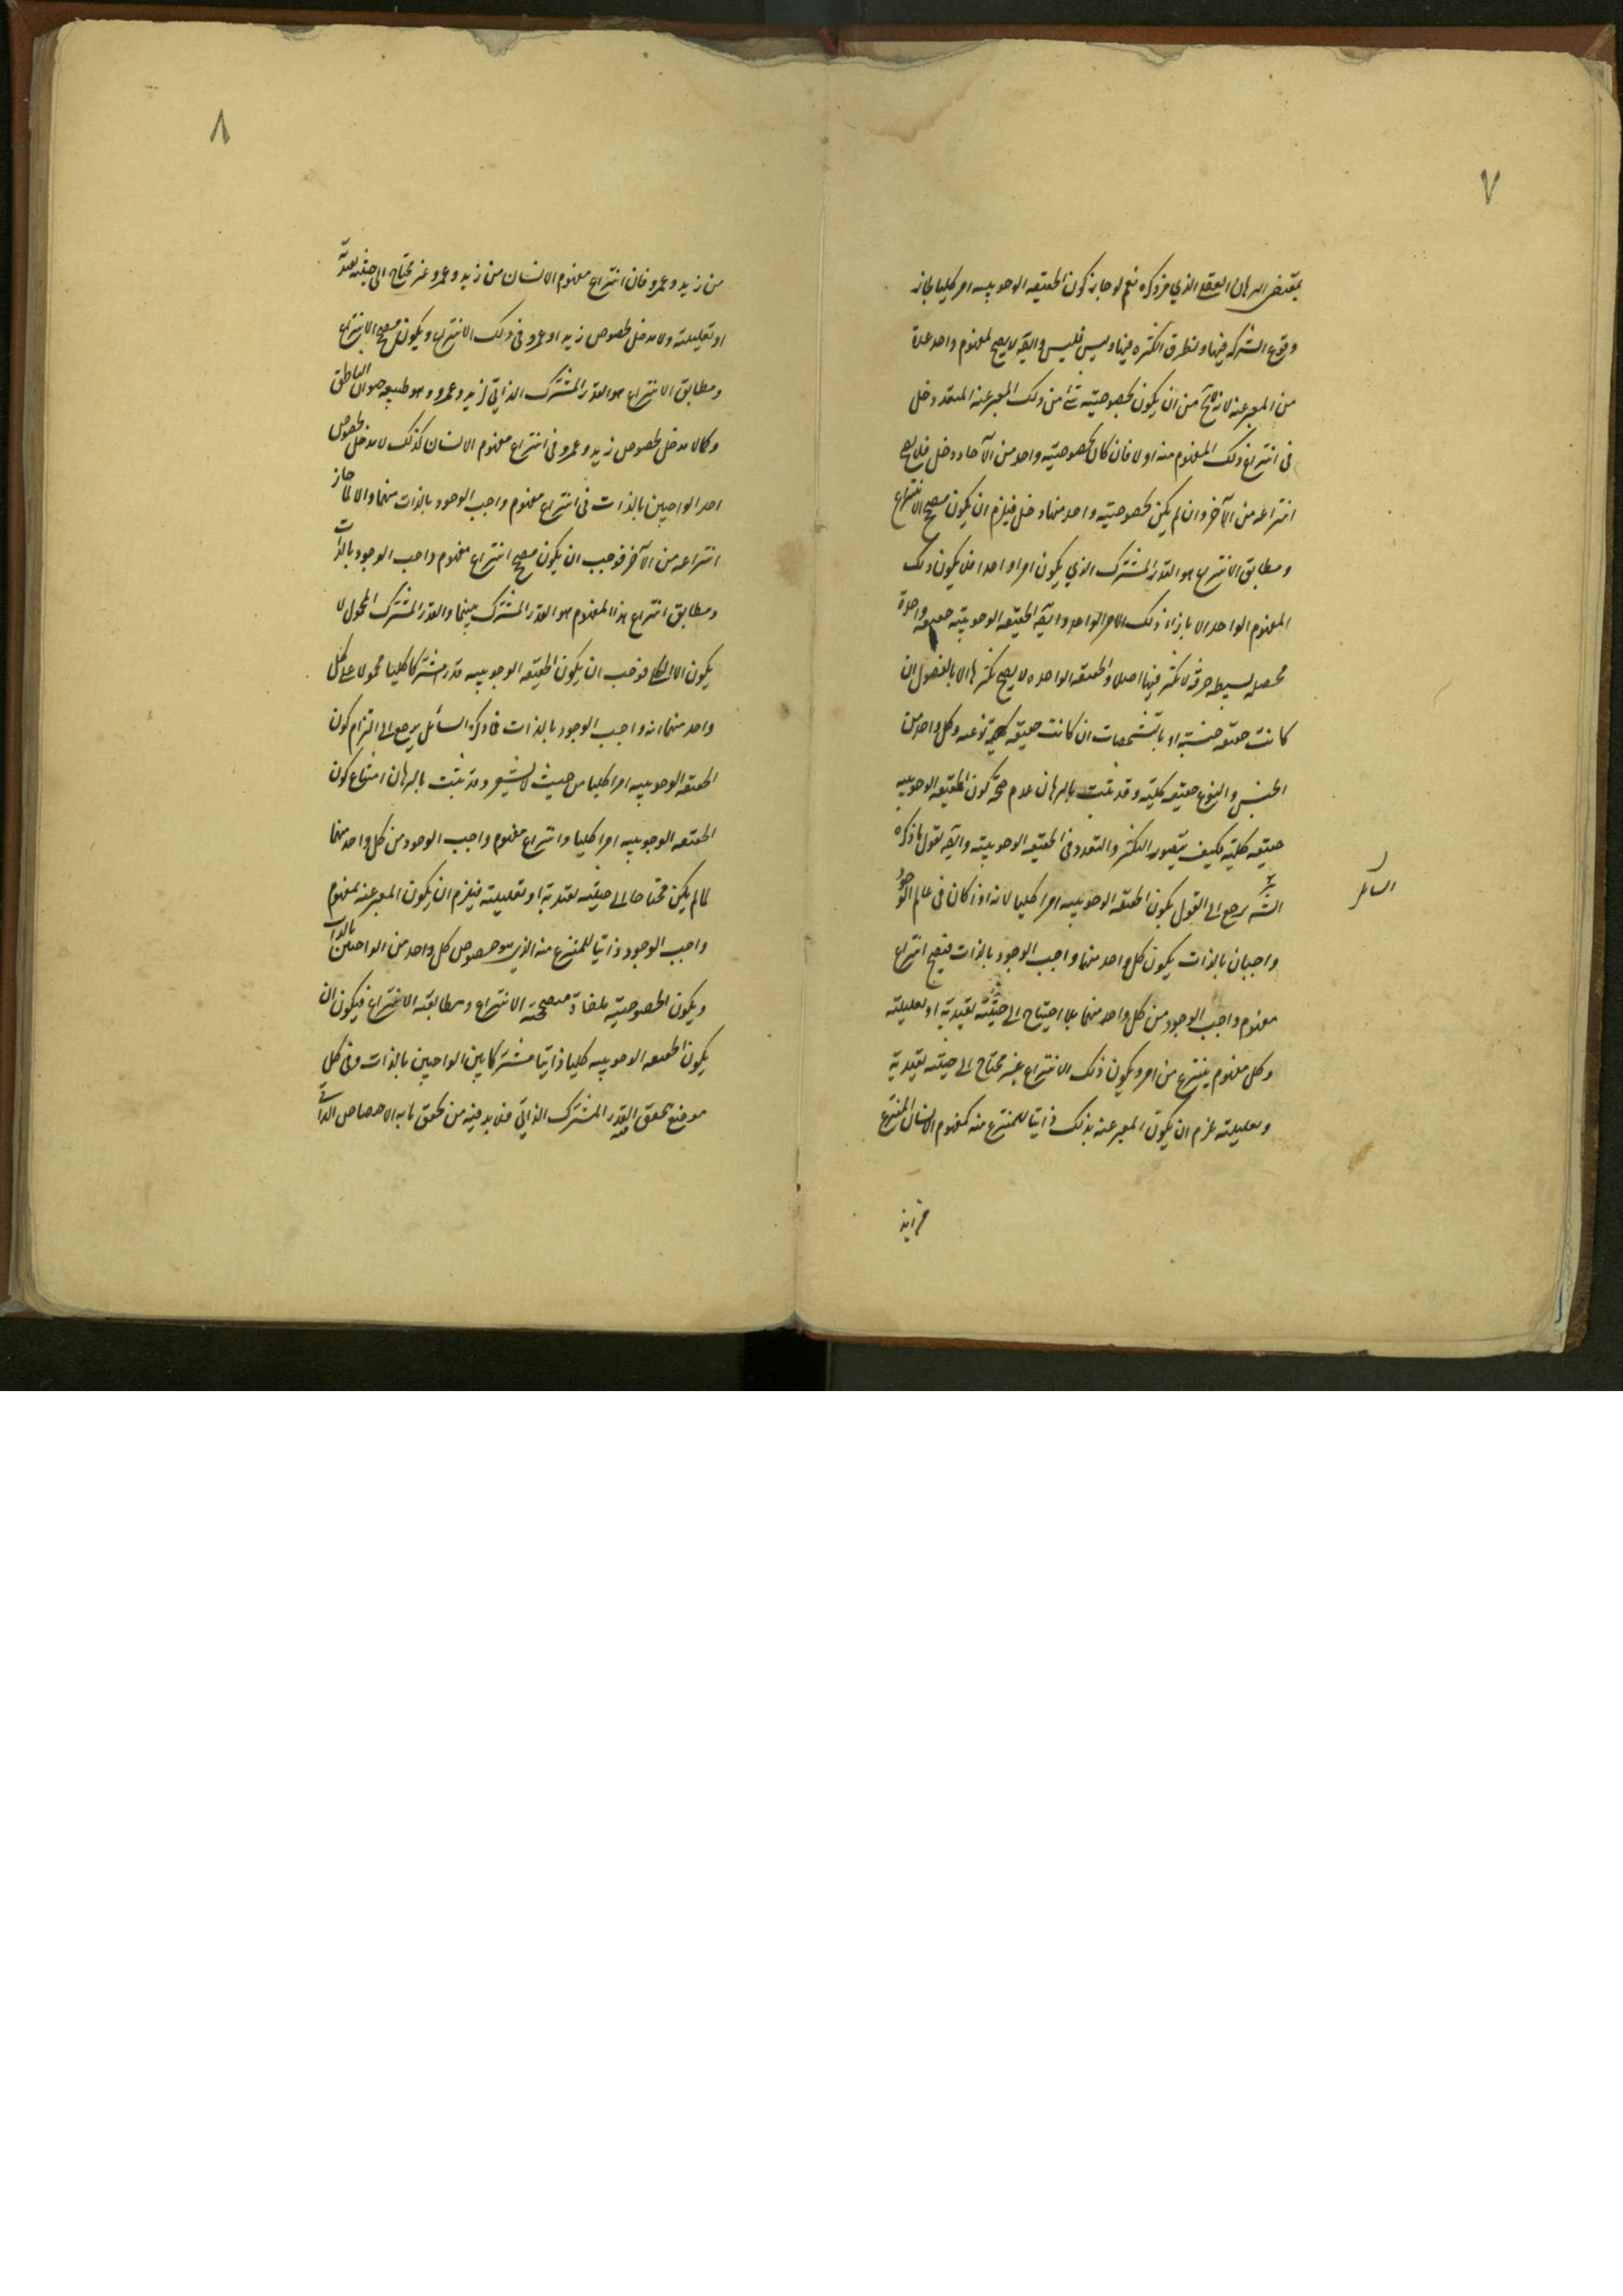 ٧
بمقتضى البرهان العقلي الذي مر ذكره نعم لو جاز كون الحقيقه الوجوبيه امرا كليا جاز
وقوع الشركه فيها وتطرق الكثره فيها وليس فليس وايضه لا يصح لمفهوم واحد عدة
من المعبر عنه لانه لا يخ من ان يكون لخصوصيته شئ من ذلك المعبر عنه المتعدد دخل
في انتزاع ذلك المفهوم منه او لا فان كان لخصوصيته واحد من الآحاد دخل فلا يصح
انتزاعه من الآخر وان لم يكن لخصوصيته واحد منها دخل فيلزم ان يكون مصحح الانتزاع
ومطابق الانتزاع هو القدر المشترك الذي يكون امرا واحدا فلا يكون ذلك
المفهوم الواحد الا بازاء ذلك الامر الواحد وايضه الحقيقه الوجوبيه حقيقه واحدة
محصله بسيطه صرفه لا تكثر فيها اصلا والحقيقه الواحده لا يصح تكثرها الا بالفصول ان
كانت حقيقه جنسيه او بالتشخصات ان كانت حقيقه نوعيه وكل واحد من
الجنس والنوع حقيقه كليه وقد ثبت بالبرهان عدم صحة كون الحقيقه الوجوبيه
حقيقه كليه فكيف يتصور التكثر والتعدد في الحقيقه الوجوبيه وايضه نقول ما ذكره
السائل
يرجع الى القول بكون الحقيقه الوجوبيه امرا كليا لانه اذ كان في عالم الوجود
واجبان بالذات يكون كل واحد منهما واجب الوجود بالذات فيصح انتزاع
مفهوم واجب الوجود من كل واحد منهما بلا احتياج الى حيثيه تقييديه او تعليليه
وكل مفهوم ينتزع من امر ويكون ذلك الانتزاع غير محتاج الى حيثيه تقييدية
وتعليليه لزم ان يكون المعبر عنه بذلك ذاتيا للمنتزع منه كمفهوم الانسان المنتزع
من زيد
٨
من زيد وعمرو فان انتزاع مفهوم الانسان من زيد وعمرو غير محتاج الى حيثيه تقييدية
او تعليليته ولا مدخل لخصوص زيد او عمرو في ذلك الانتزاع ويكون مصحح الانتزاع
ومطابق الانتزاع هو القدر المشترك الذاتي لزيد وعمرو وهو طبيعه حيوان الناطق
وكما لا مدخل لخصوص زيد وعمرو في انتزاع مفهوم الانسان كذلك لا مدخل لخصوص
احد الواجبين بالذات في انتزاع مفهوم واجب الوجود بالذات منهما والا لما جاز
انتزاعه من الآخر فوجب ان يكون مصحح انتزاع مفهوم واجب الوجود بالذات
ومطابق انتزاع هذا المفهوم هو القدر المشترك بينهما والقدر المشترك المحمول لا
يكون الا الكلي فوجب ان يكون الحقيقه الوجوبيه قدر مشتركا كليا محمولا على كل
واحد منهما انه واجب الوجود بالذات فما ذكره السائل يرجع الى التزام كون
الحقيقه الوجوبيه امرا كليا من حيث لا يشعر وقد ثبت بالبرهان امتناع كون
الحقيقه الوجوبيه امرا كليا وانتزاع مفهوم واجب الوجود من كل واحد منهما
لما لم يكن محتاجا الى حيثيه تقييديه او تعليليته فيلزم ان يكون المعبر عنه بمفهوم
واجب الوجود ذاتيا للمنتزع منه الذي هو خصوص كل واحد من الواجبين بالذات
ويكون الخصوصيه ملغاة مصححة الانتزاع ومطابقه الانتزاع فيكون ان
يكون الحقيقه الوجوبيه كليا ذاتيا مشتركا بين الواجبين بالذات وفي كل
موضع تحقق القدر المشترك الذاتي فلا بد فيه من تحقق ما به الامتياز الذاتي